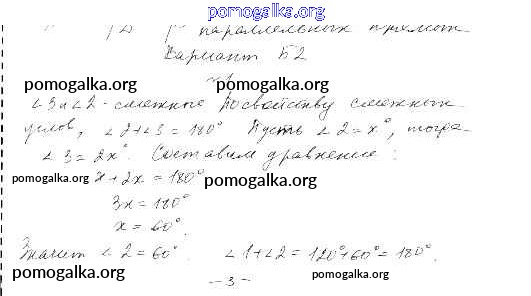 pomogalka.org
параллельных прямых
Вариант Б2
pomogalka.org pomogalka.org
∠3 и ∠2 - смежные. По свойству смежных
углов, ∠2+∠3 = 180° Пусть ∠2 = x°, тогда
∠3 = 2x°. Составим уравнение:
pomogalka.org x + 2x = 180° pomogalka.org
3x = 180°
x = 60°.
Значит ∠2 = 60°. ∠1+∠2 = 120°+60° = 180°.
pomogalka.org pomogalka.org
- 3 -